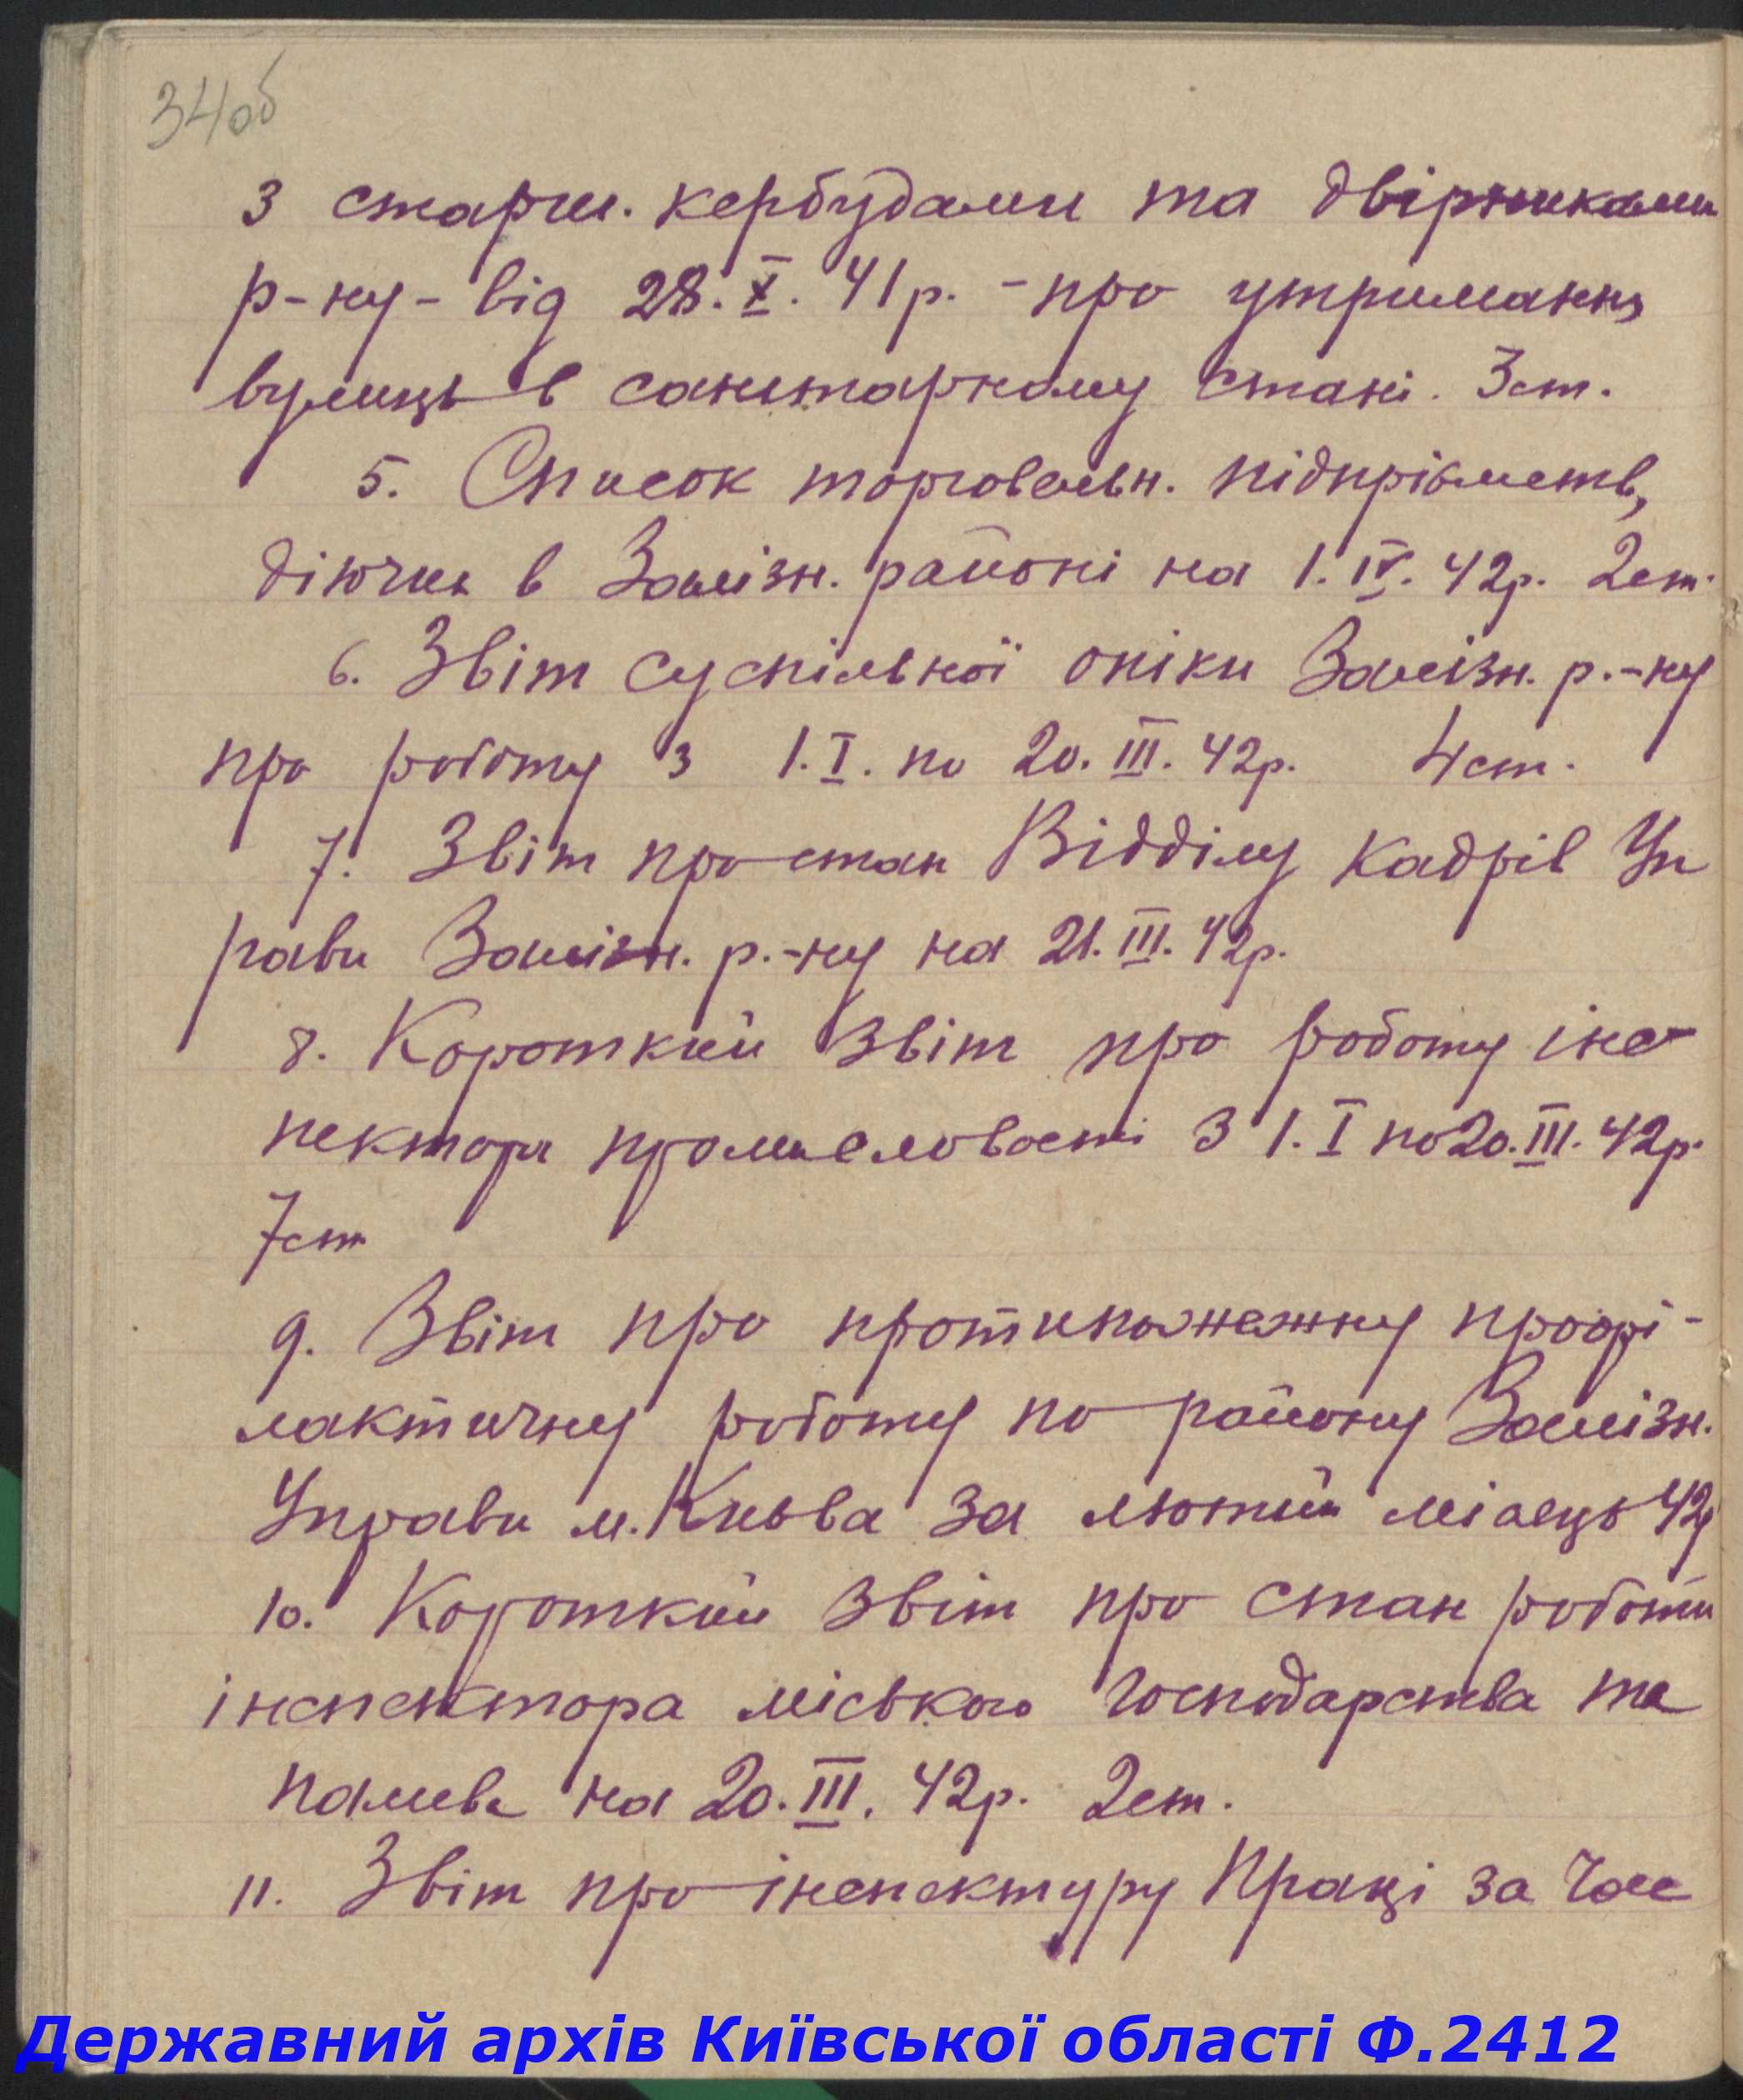 34об
з старш. кербудами та двірниками
р-ну - від 28.X.41р. - про утримання
вулиць в санитарному стані. 3ст.
5. Список торговельн. підпріємств,
діючих в Залізн. районі на 1.IV.42р. 2ст.
6. Звіт суспільної опіки Залізн. р.-ну
про роботу з 1.I. по 20.III.42р. 4ст.
7. Звіт про стан Відділу кадрів Уп
рави Залізн. р.-ну на 21.III.42р.
8. Короткий звіт про роботу інс
пектора промисловості з 1.I по 20.III.42р.
7ст
9. Звіт про протипожежну профі-
лактичну роботу по району Залізн.
Управи м. Києва за лютий місяць 42р
10. Короткий звіт про стан роботи
інспектора міського господарства та
палива на 20.III.42р. 2ст.
11. Звіт про інспектуру Праці за час
Державний архів Київської області Ф.2412